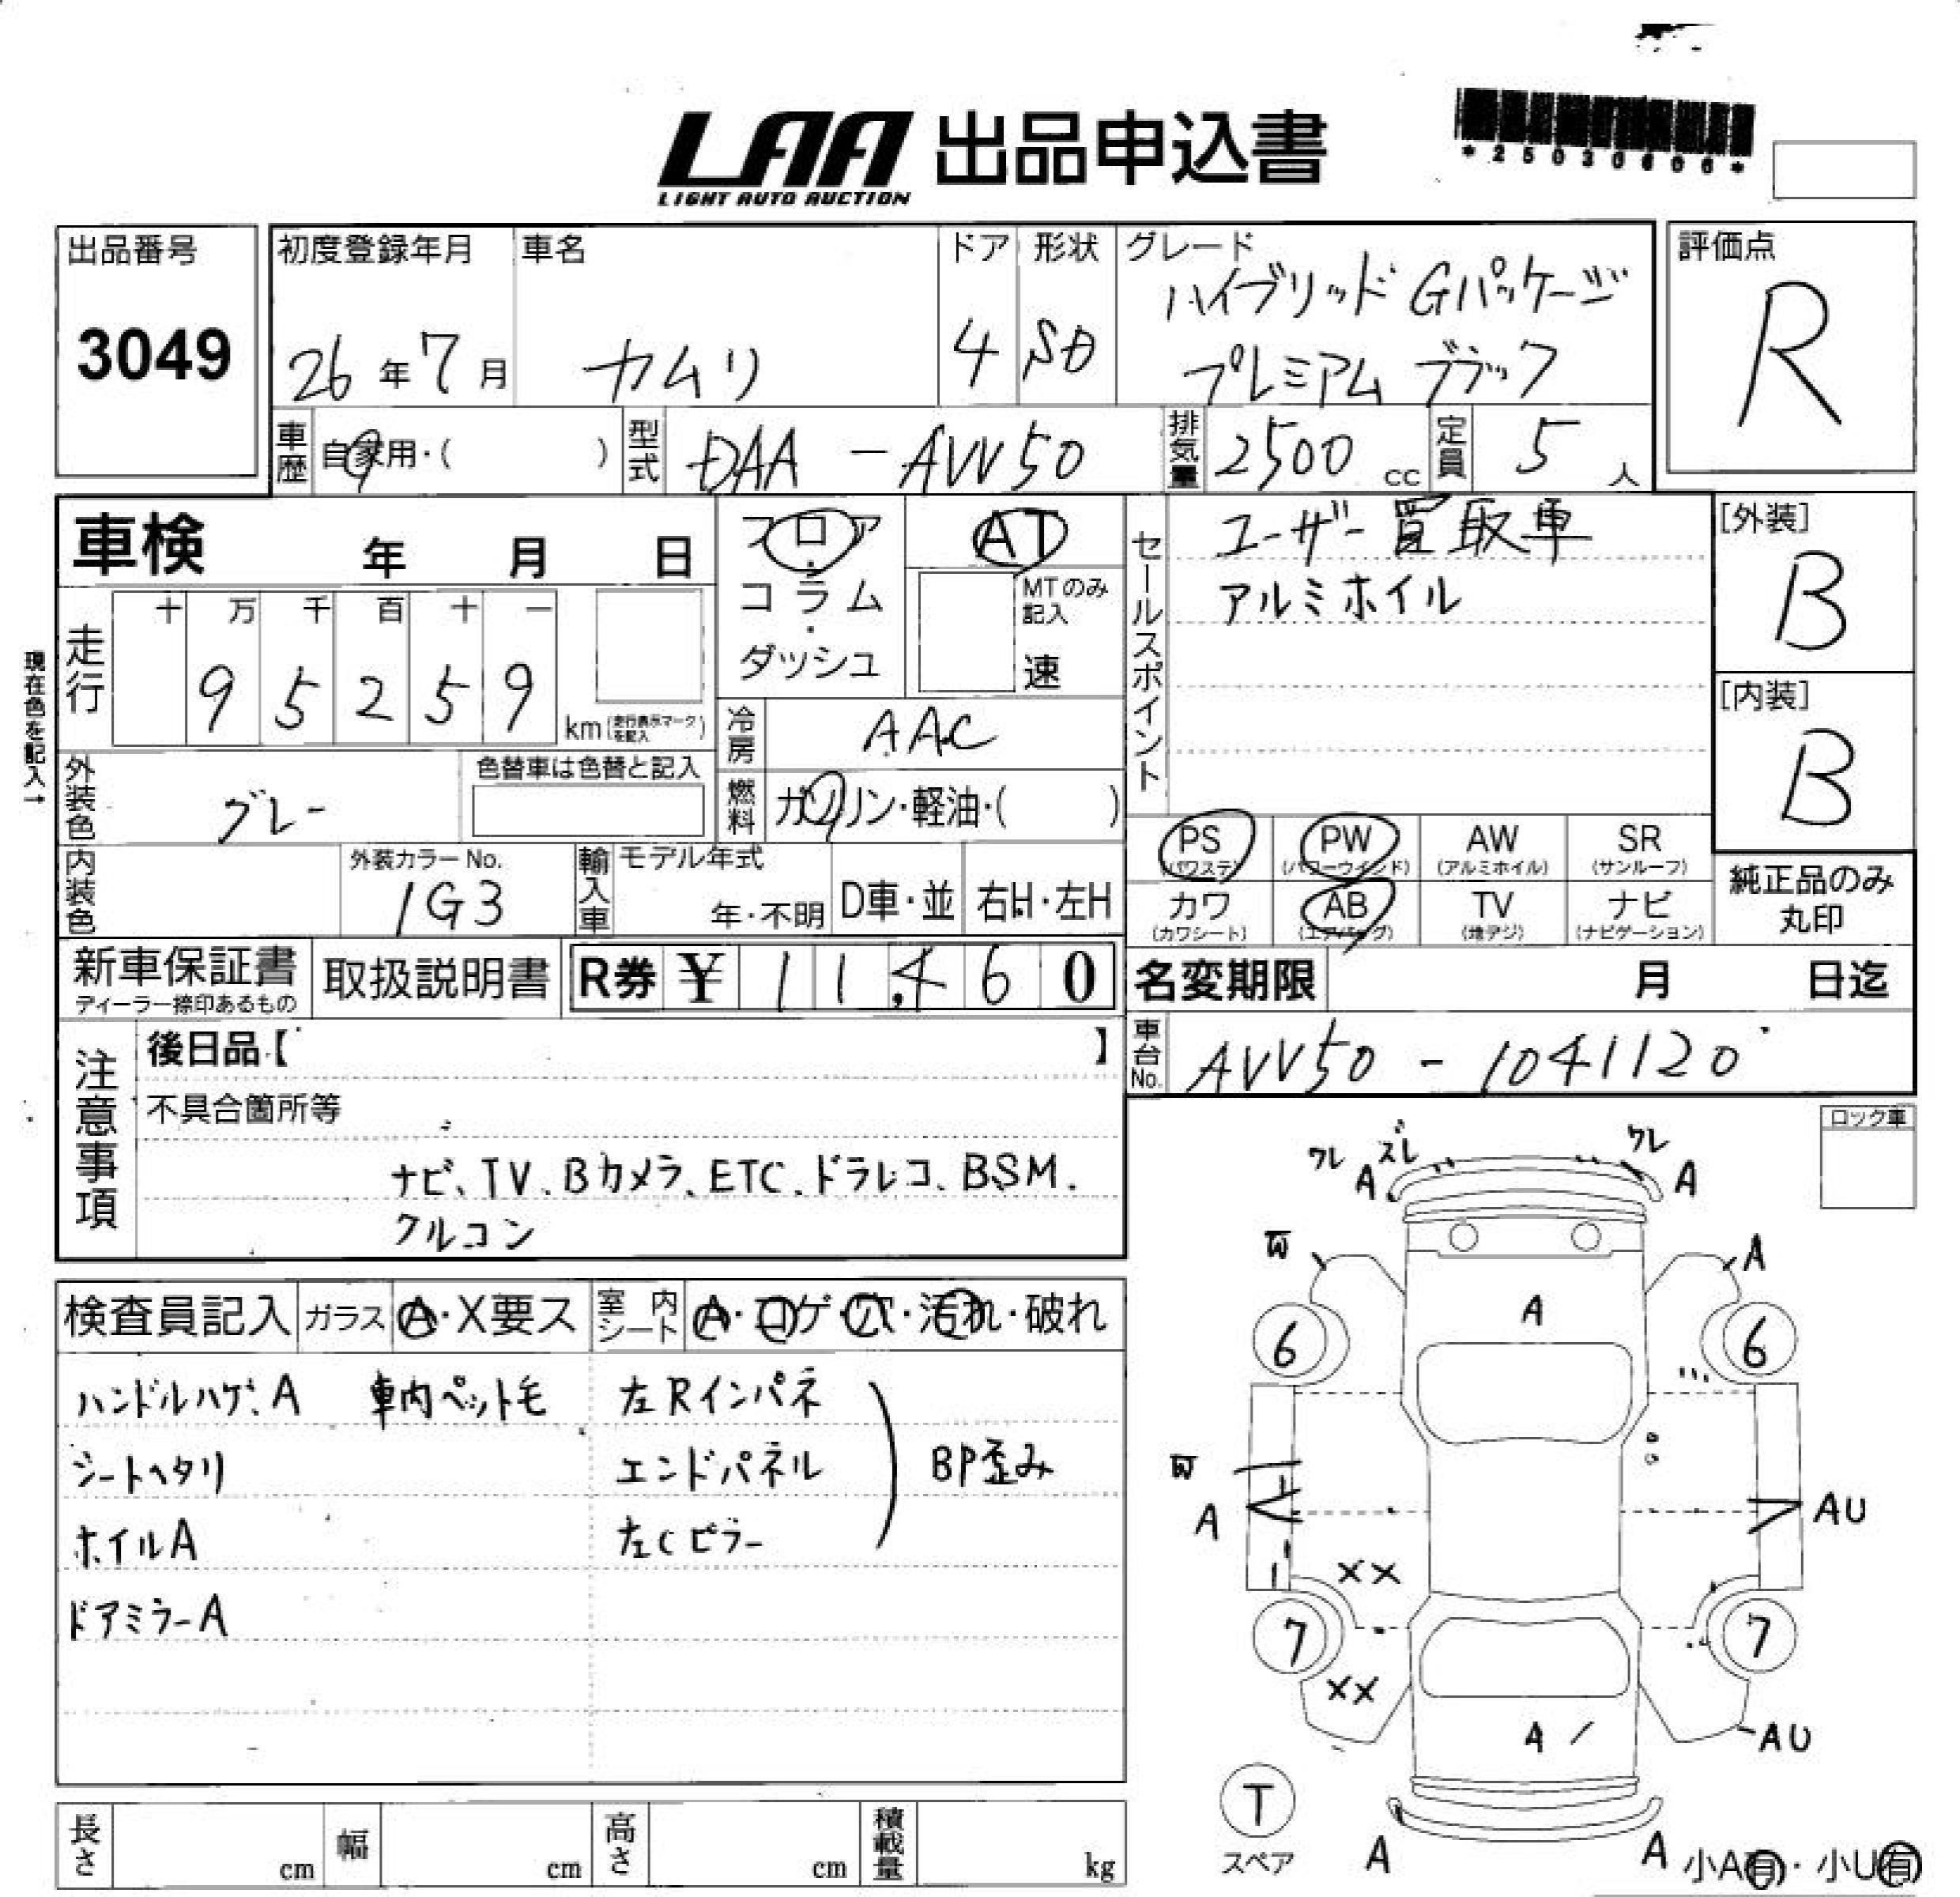 LAA 出品申込書
LIGHT AUTO AUCTION
*25030606*
出品番号
3049
初度登録年月
26年7月
車名
カムリ
ドア
4
形状
SD
グレード
ハイブリッド Gパッケージ
プレミアム ブラック
評価点
R
車歴
自家用・( )
型式
DAA - AVV50
排気量
2500 cc
定員
5 人
車検 年 月 日
フロア
・
コラム
・
ダッシュ
AT
MTのみ記入
速
セールスポイント
ユーザー買取車
アルミホイル
[外装]
B
[内装]
B
現在色を記入→
走行
十 万 千 百 十 一
9 5 2 5 9
km(走行表示マークを記入)
冷房
AAC
外装色
グレー
色替車は色替と記入
燃料
ガソリン・軽油・( )
PS
(パワステ)
PW
(パワーウインド)
AW
(アルミホイル)
SR
(サンルーフ)
カワ
(カワシート)
AB
(エアバッグ)
TV
(地デジ)
ナビ
(ナビゲーション)
純正品のみ
丸印
内装色
外装カラーNo.
1G3
輸入車
モデル年式
年・不明
D車・並
右H・左H
新車保証書
ディーラー捺印あるもの
取扱説明書
R券 ¥ 1 1,4 6 0
名変期限 月 日迄
車台No.
AVV50 - 1041120
注意事項
後日品【 】
不具合箇所等
ナビ、TV、Bカメラ、ETC、ドラレコ、BSM.
クルコン
ロック車
検査員記入
ガラス
A・X要ス
室内シート
A・コゲ・穴・汚れ・破れ
ハンドルハゲ、A 車内ペット毛
シートヘタリ
ホイルA
ドアミラーA
左Rインパネ
エンドパネル
左Cピラー
BP歪み
ワレ ズレ ワレ
A A
W A
A
6 6
W
A AU
XX
7 7
XX
A AU
T
スペア
A A
小A有・小U有
長さ cm
幅 cm
高さ cm
積載量 kg